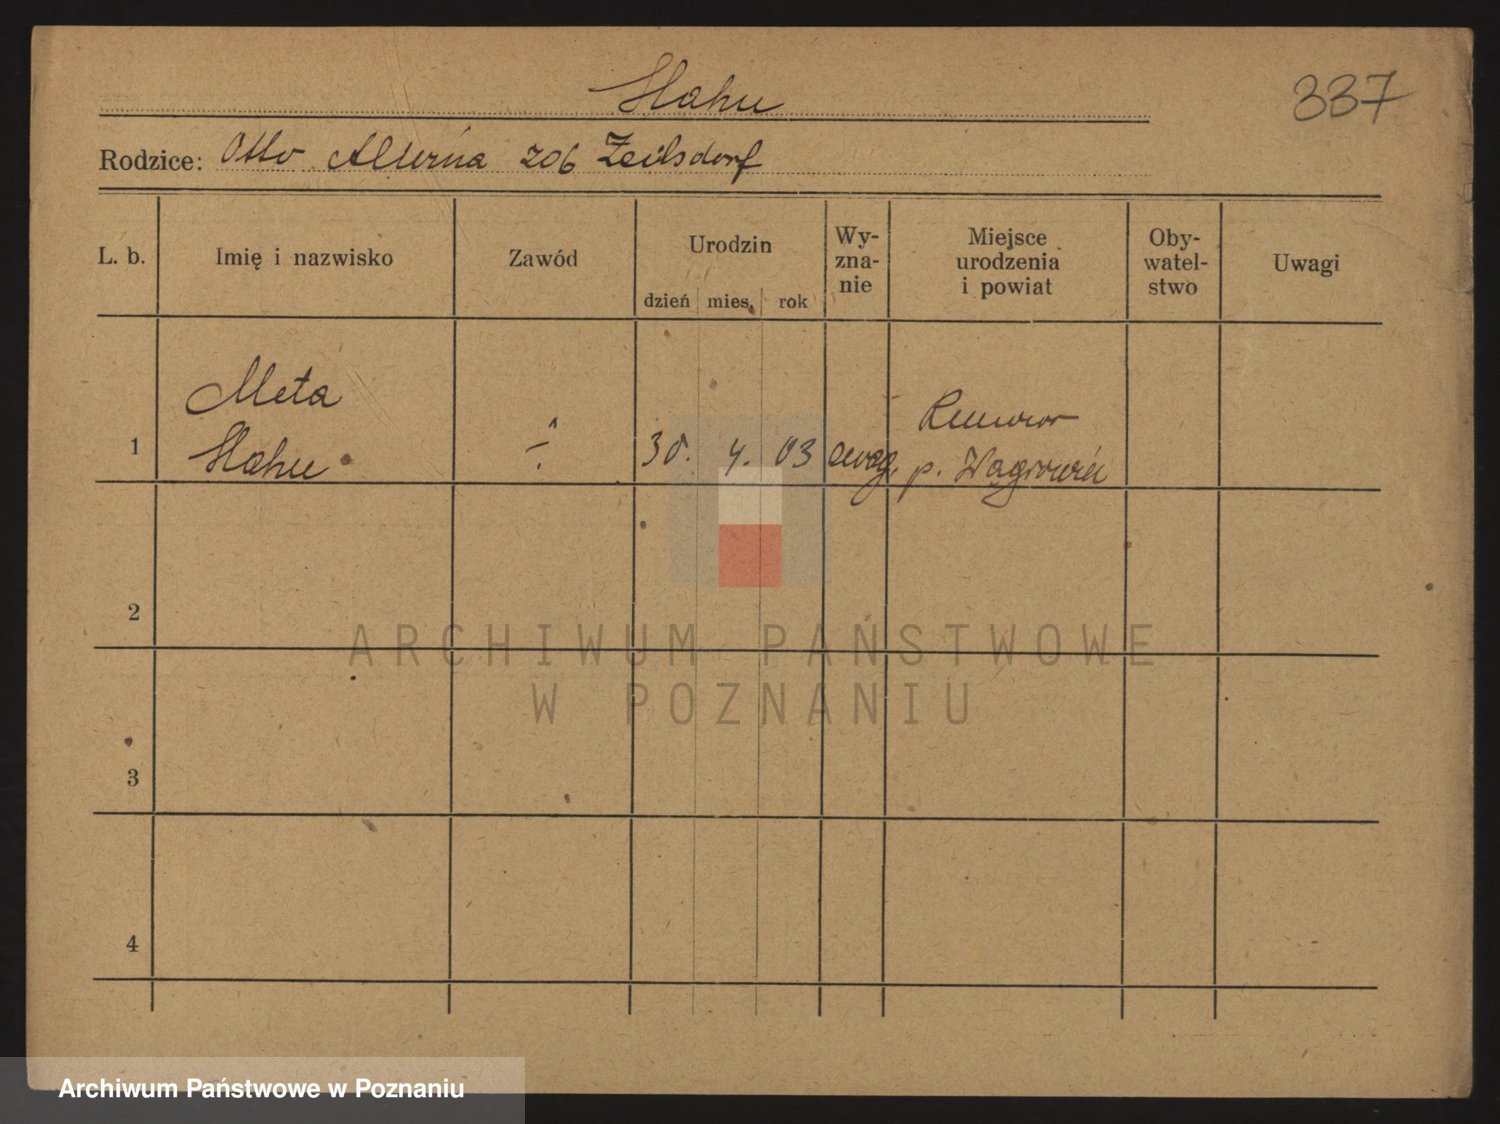 Hahn
337
Rodzice: Otto Alwina zob Zeilsdorf
L. b.
Imię i nazwisko
Zawód
Urodzin
dzień mies. rok
Wy-
zna-
nie
Miejsce
urodzenia
i powiat
Oby-
watel-
stwo
Uwagi
Meta
1 Hahn 30. 4. 03 ewag. p. Wągrowiec
2
3
4
ARCHIWUM PAŃSTWOWE
W POZNANIU
Archiwum Państwowe w Poznaniu